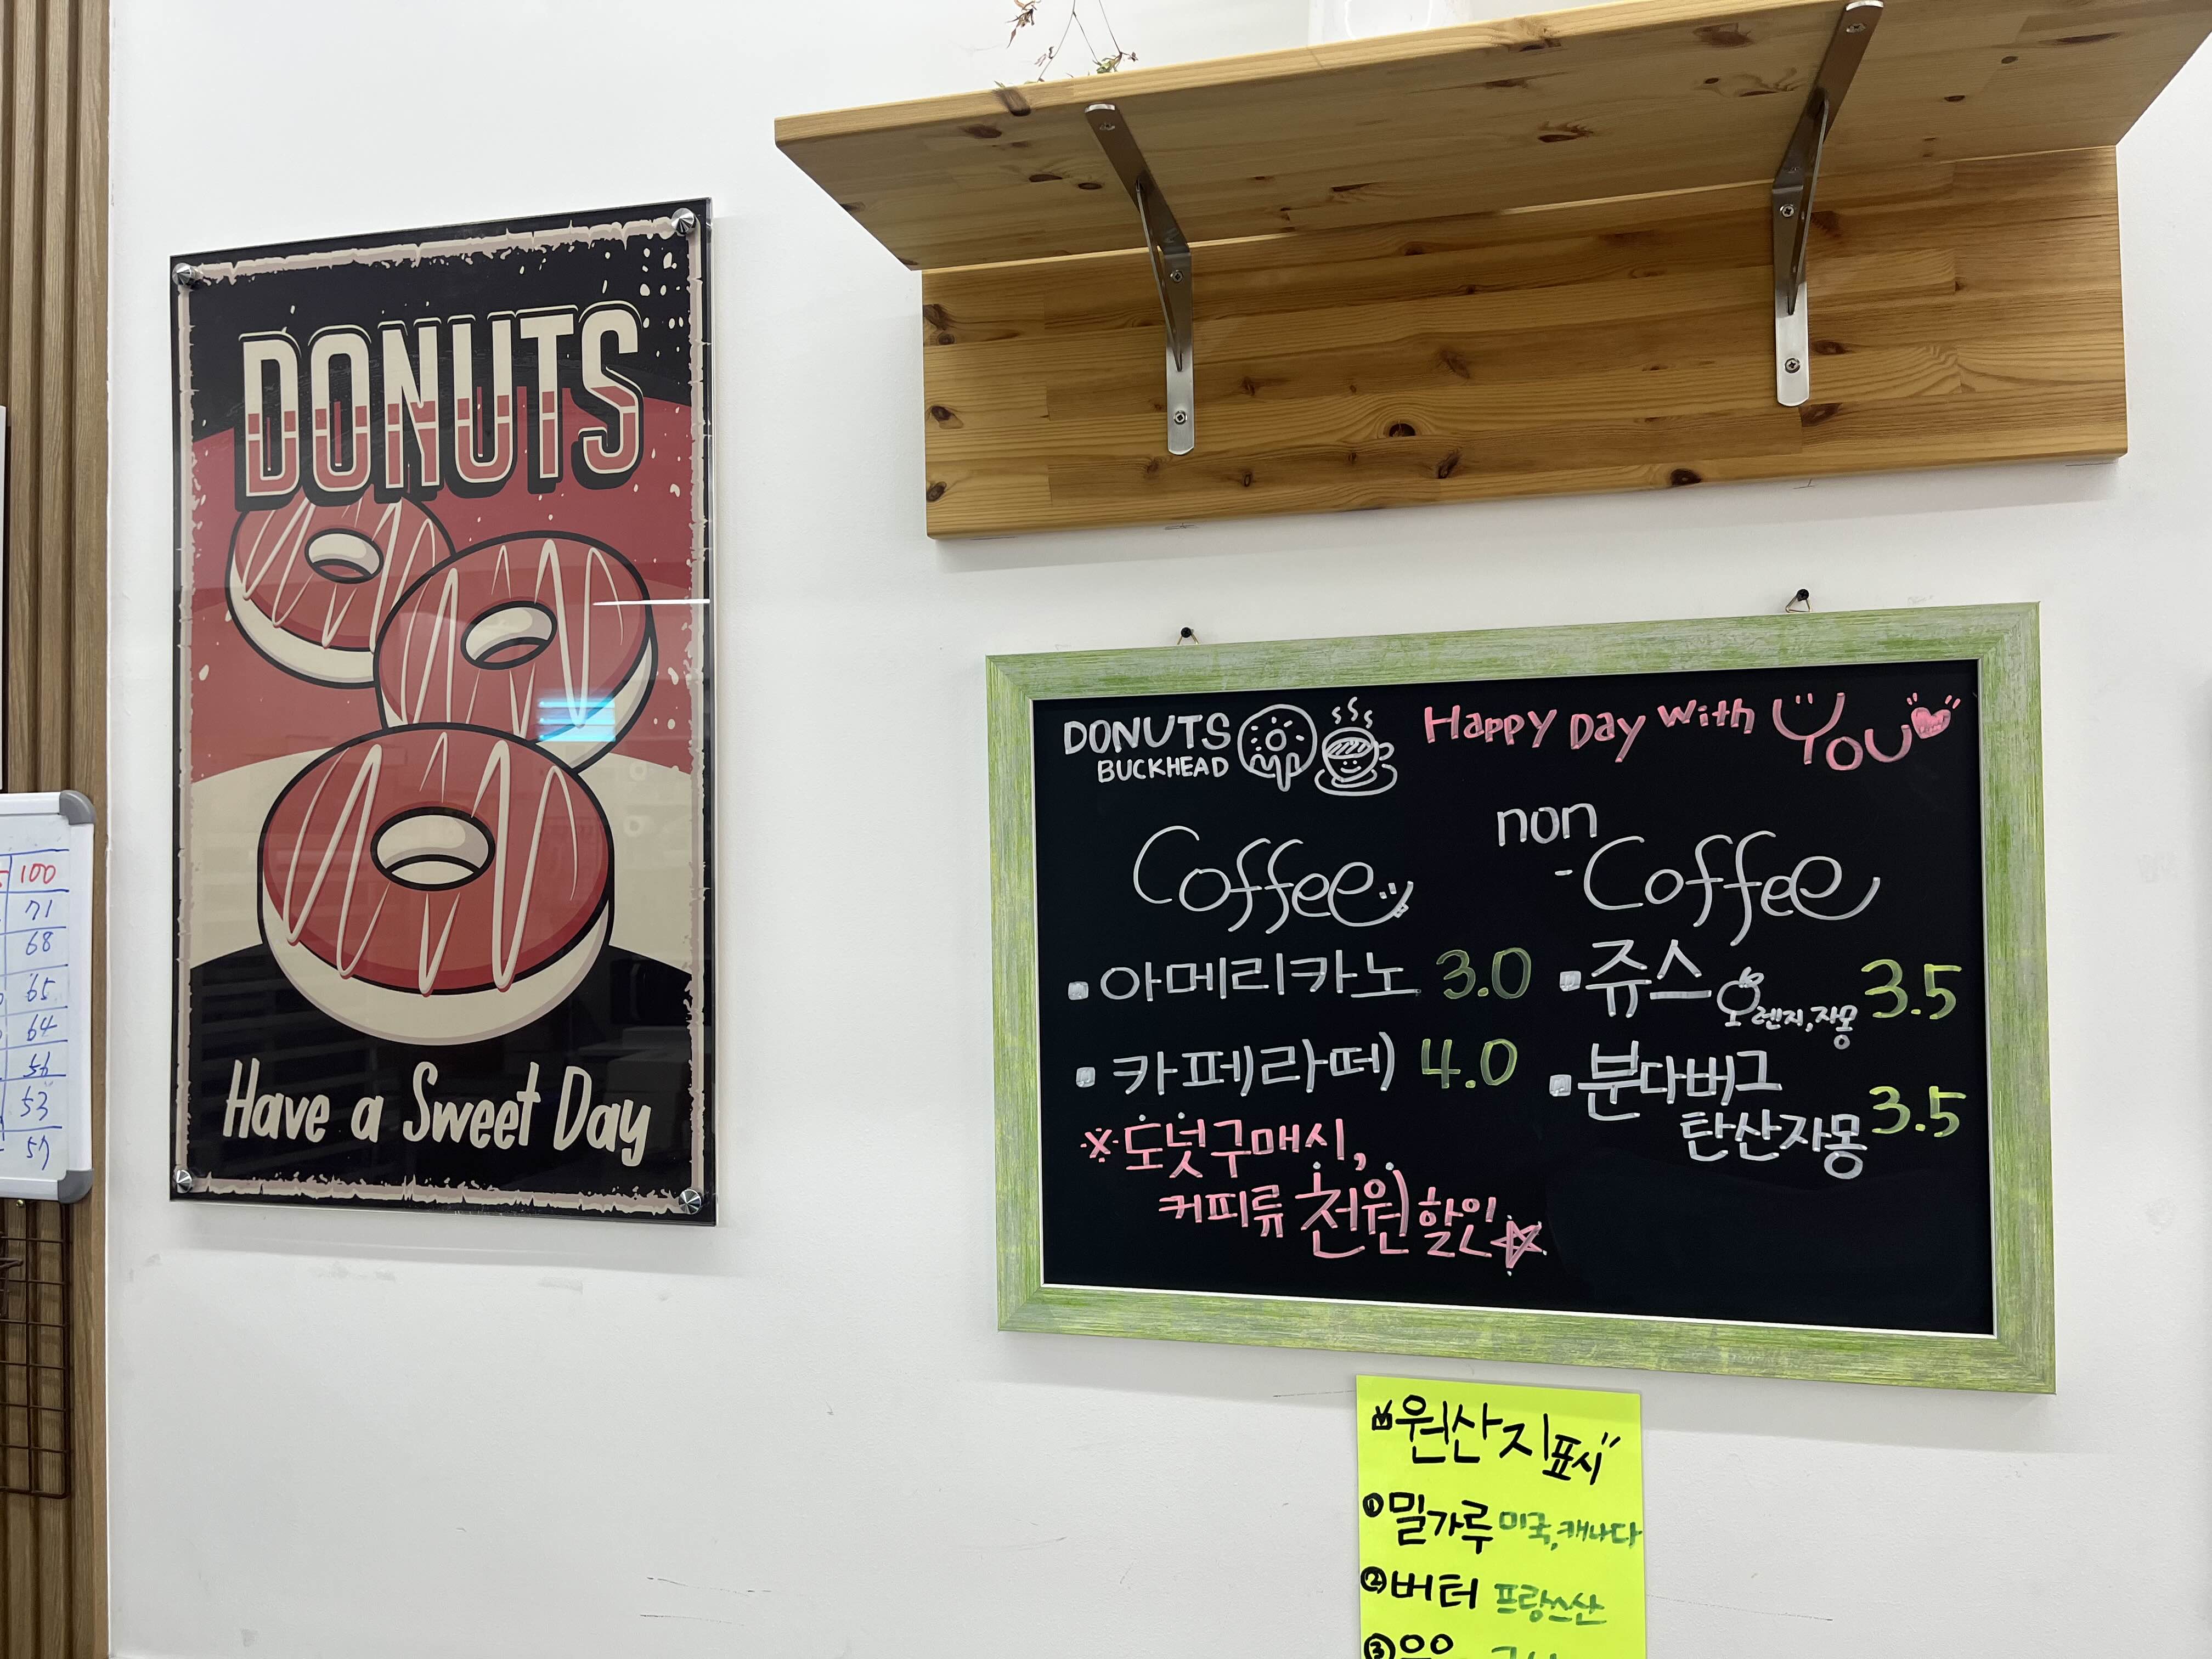 DONUTS
Have a Sweet Day
100
71
68
65
64
56
53
57
DONUTS
BUCKHEAD
Happy Day With YOU
Coffee
아메리카노 3.0
카페라떼 4.0
※도넛구매시,
커피류 천원 할인
non
-Coffee
쥬스 오렌지,자몽 3.5
분다버그
탄산자몽 3.5
원산지표시
① 밀가루 미국,캐나다
② 버터 프랑쓰산
③